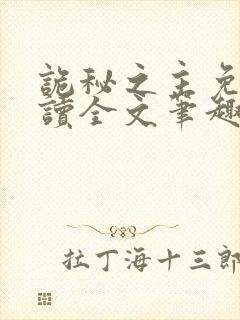 詭秘之主免
讀全文筆趣
拉丁海十三郎